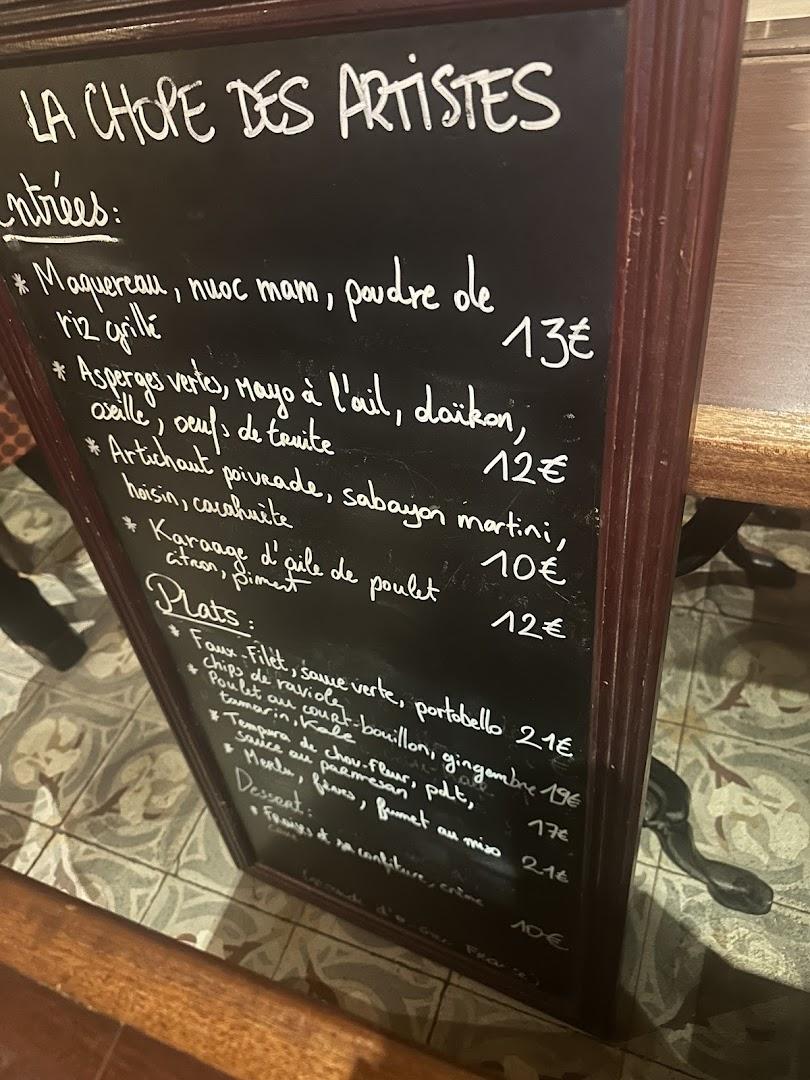 LA CHOPE DES ARTISTES
Entrées:
* Maquereau, nuoc mam, poudre de
riz grillé 13€
* Asperges vertes, Mayo à l'ail, daïkon,
oseille, oeufs de truite 12€
* Artichaut poivrade, sabayon martini,
hoisin, cacahuète 10€
* Karaage d'aile de poulet
citron, piment 12€
Plats:
* Faux-Filet, sauce verte, portobello
chips de ravioles 21€
* Poulet au court-bouillon, gingembre
tamarin, kale 19€
* Tempura de chou-fleur,
sauce au parmesan 17€
* Merlu, fèves, fumet au miso 21€
Dessert:
* Fraises et sa confiture, crème
10€